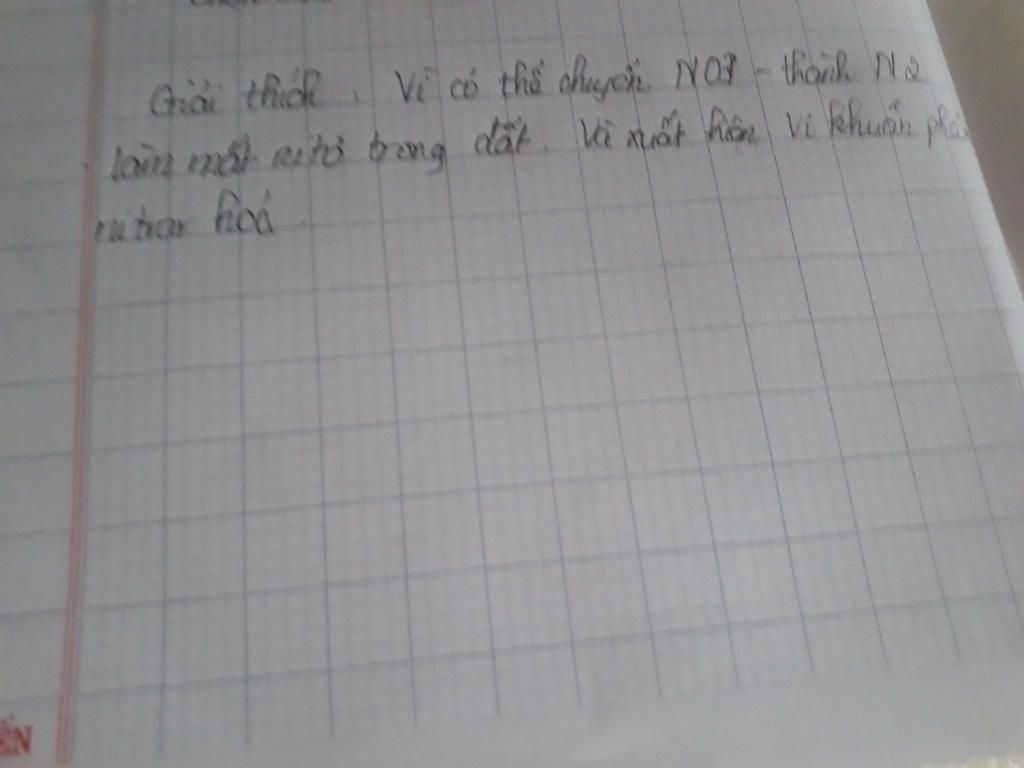 Giải thích. Vì có thể chuyển NO3 - thành N2
làm mất nitơ trong đất. Và xuất hiện vi khuẩn phản
nitrat hoá